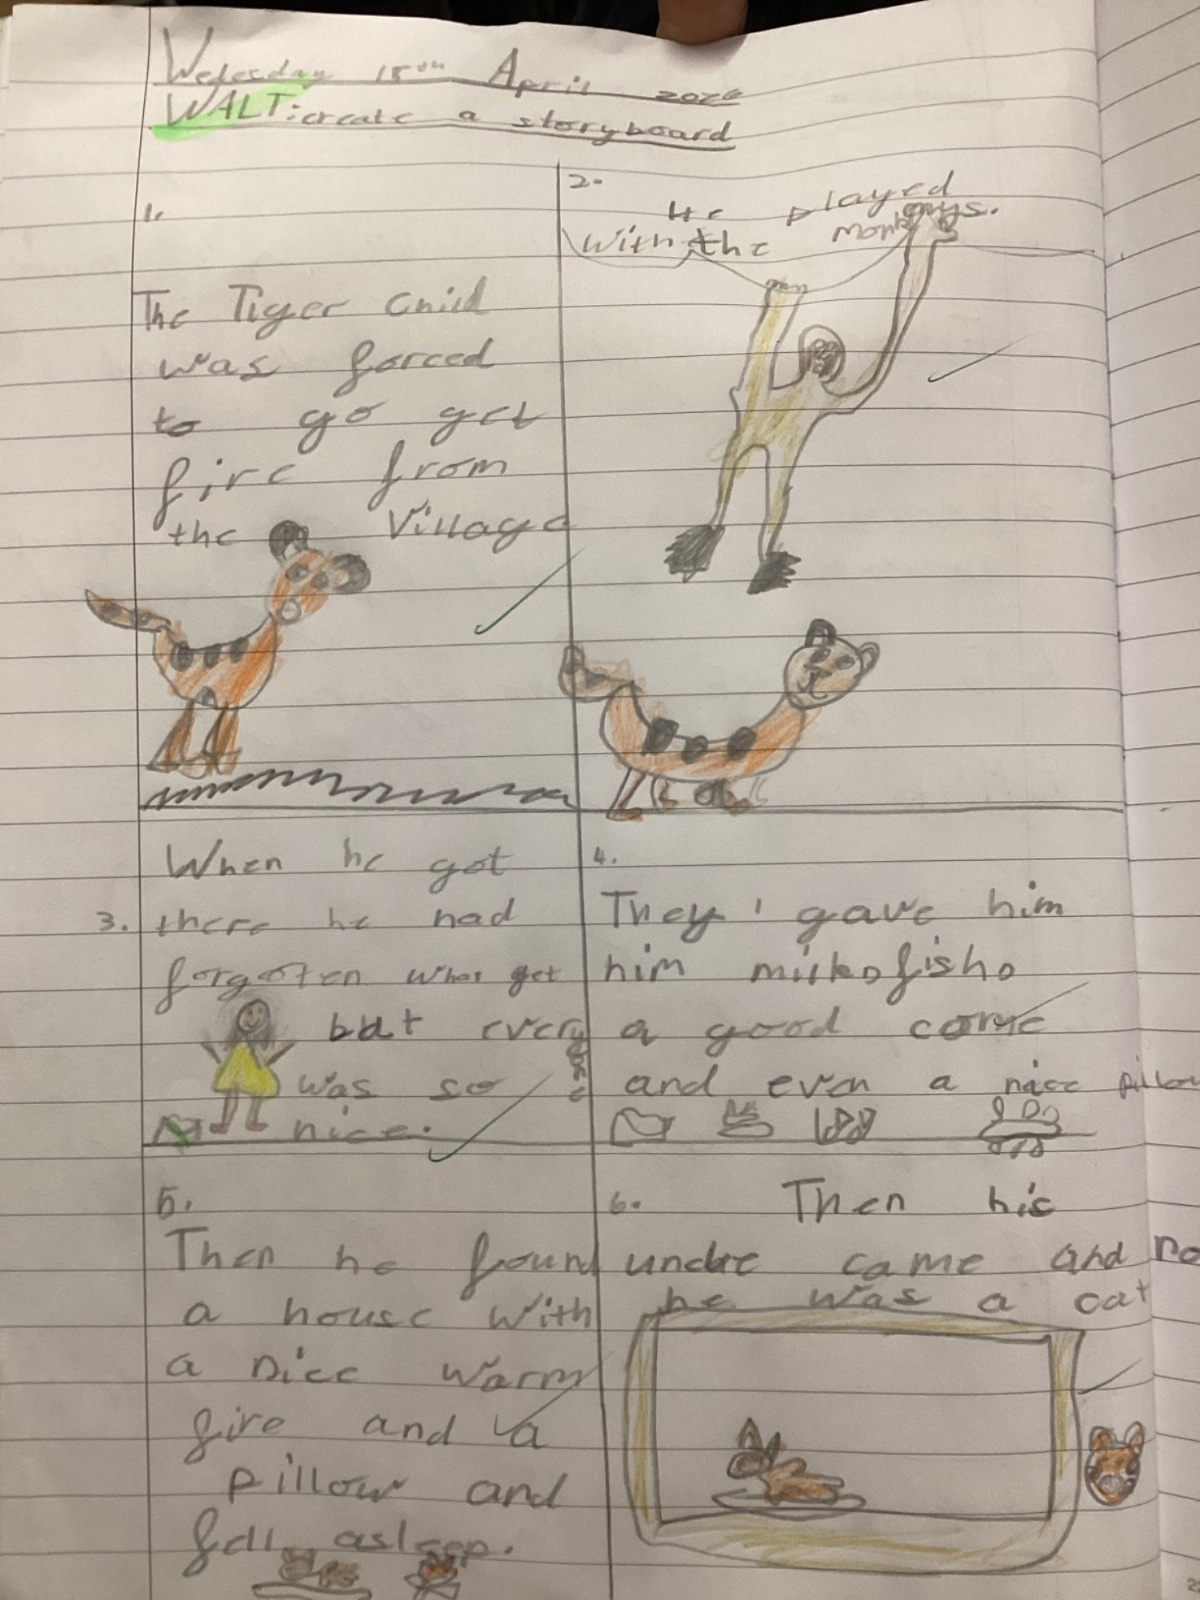 Wedesday 15th April 2026
WALT: create a storyboard
1.
The Tiger Child
was forced
to go get
fire from
the Village
2.
He played
with the monkeys.
3.
When he got
there he had
forgoten what get
but everyone
was so
nice.
4.
They gave him
him milk fish
a good come
and even a nice pillow
5.
Then he found
a house with
a nice warm
fire and a
pillow and
fell asleep.
6.
Then his
uncle came and no
he was a cat